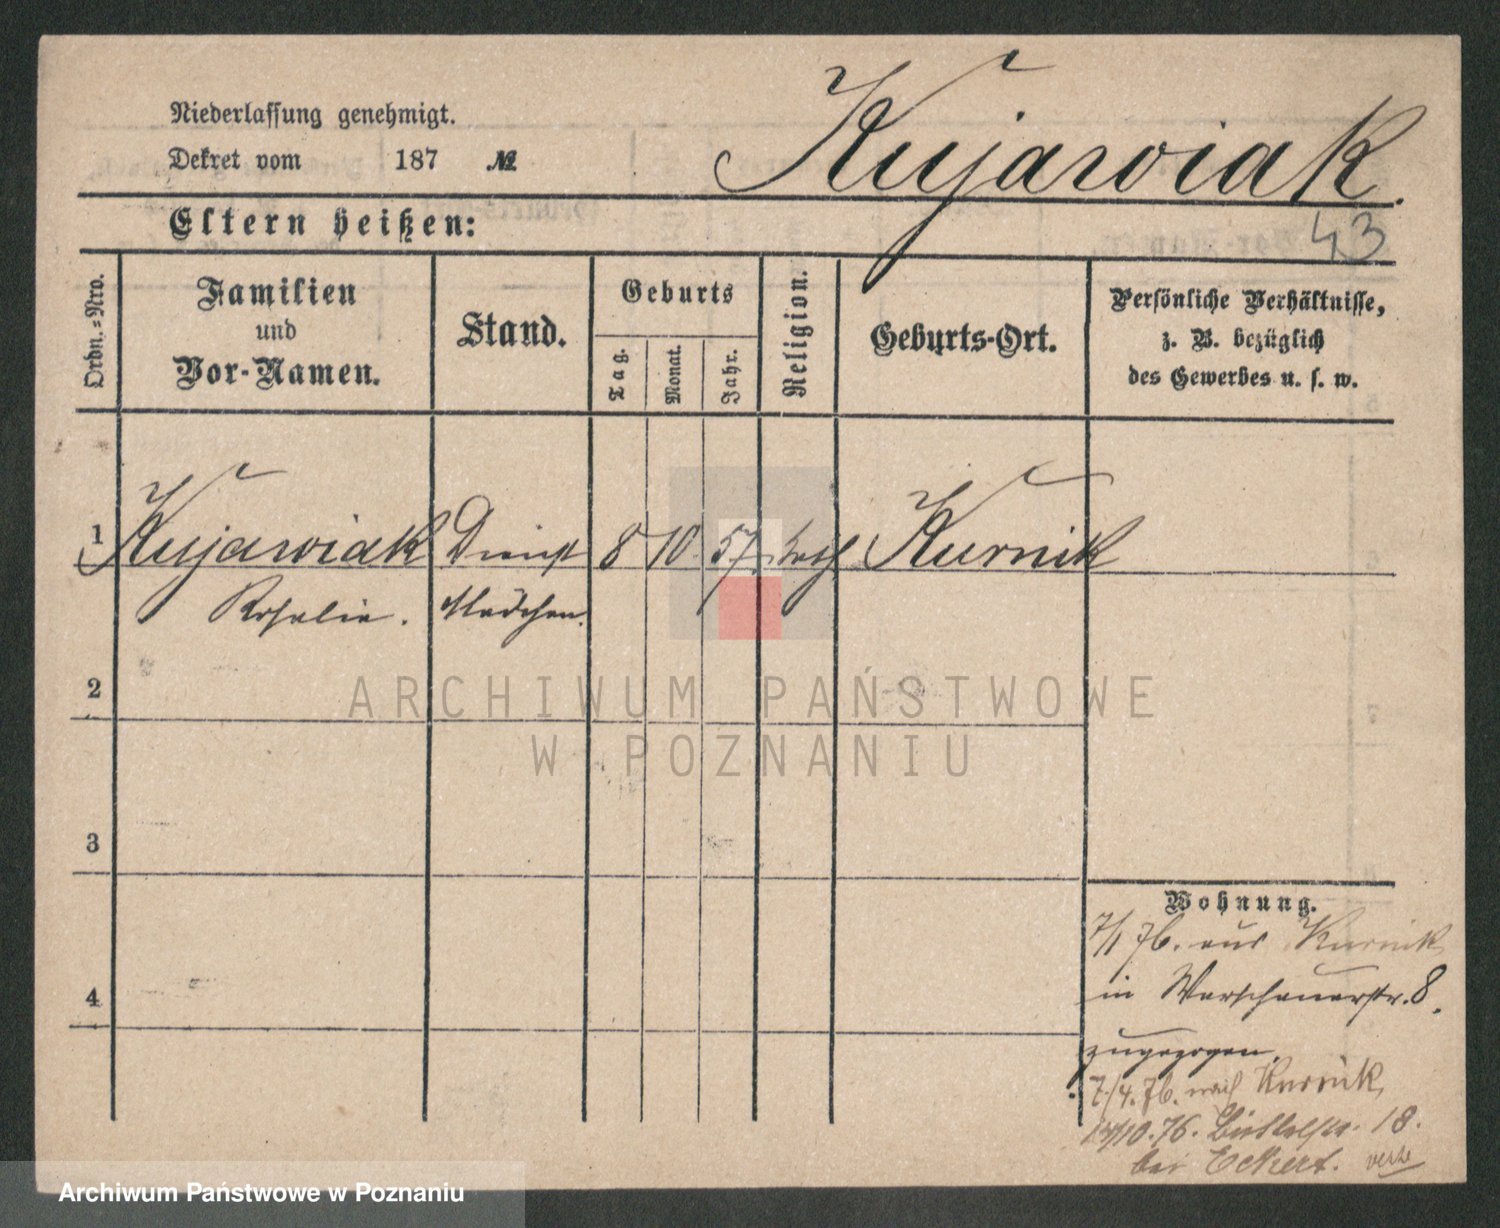 Niederlassung genehmigt.
Dekret vom 187 №
Kujawiak.
43
Eltern heißen:
Ordn.-Nro.
Familien
und
Vor-Namen.
Stand.
Geburts
Tag.
Monat.
Jahr.
Religion.
Geburts-Ort.
Persönliche Verhältnisse,
z. B. bezüglich
des Gewerbes u. s. w.
1 Kujawiak Dienst 8 10 57. kath Kurnik
Rosalie. Mädchen.
2
3
4
Wohnung.
7/1 76. aus Kurnik
in Warschauerstr. 8.
zugezogen.
7/4. 76. nach Kurnik,
10. 76. 18.
bei Eckert.
ARCHIWUM PAŃSTWOWE
W POZNANIU
Archiwum Państwowe w Poznaniu